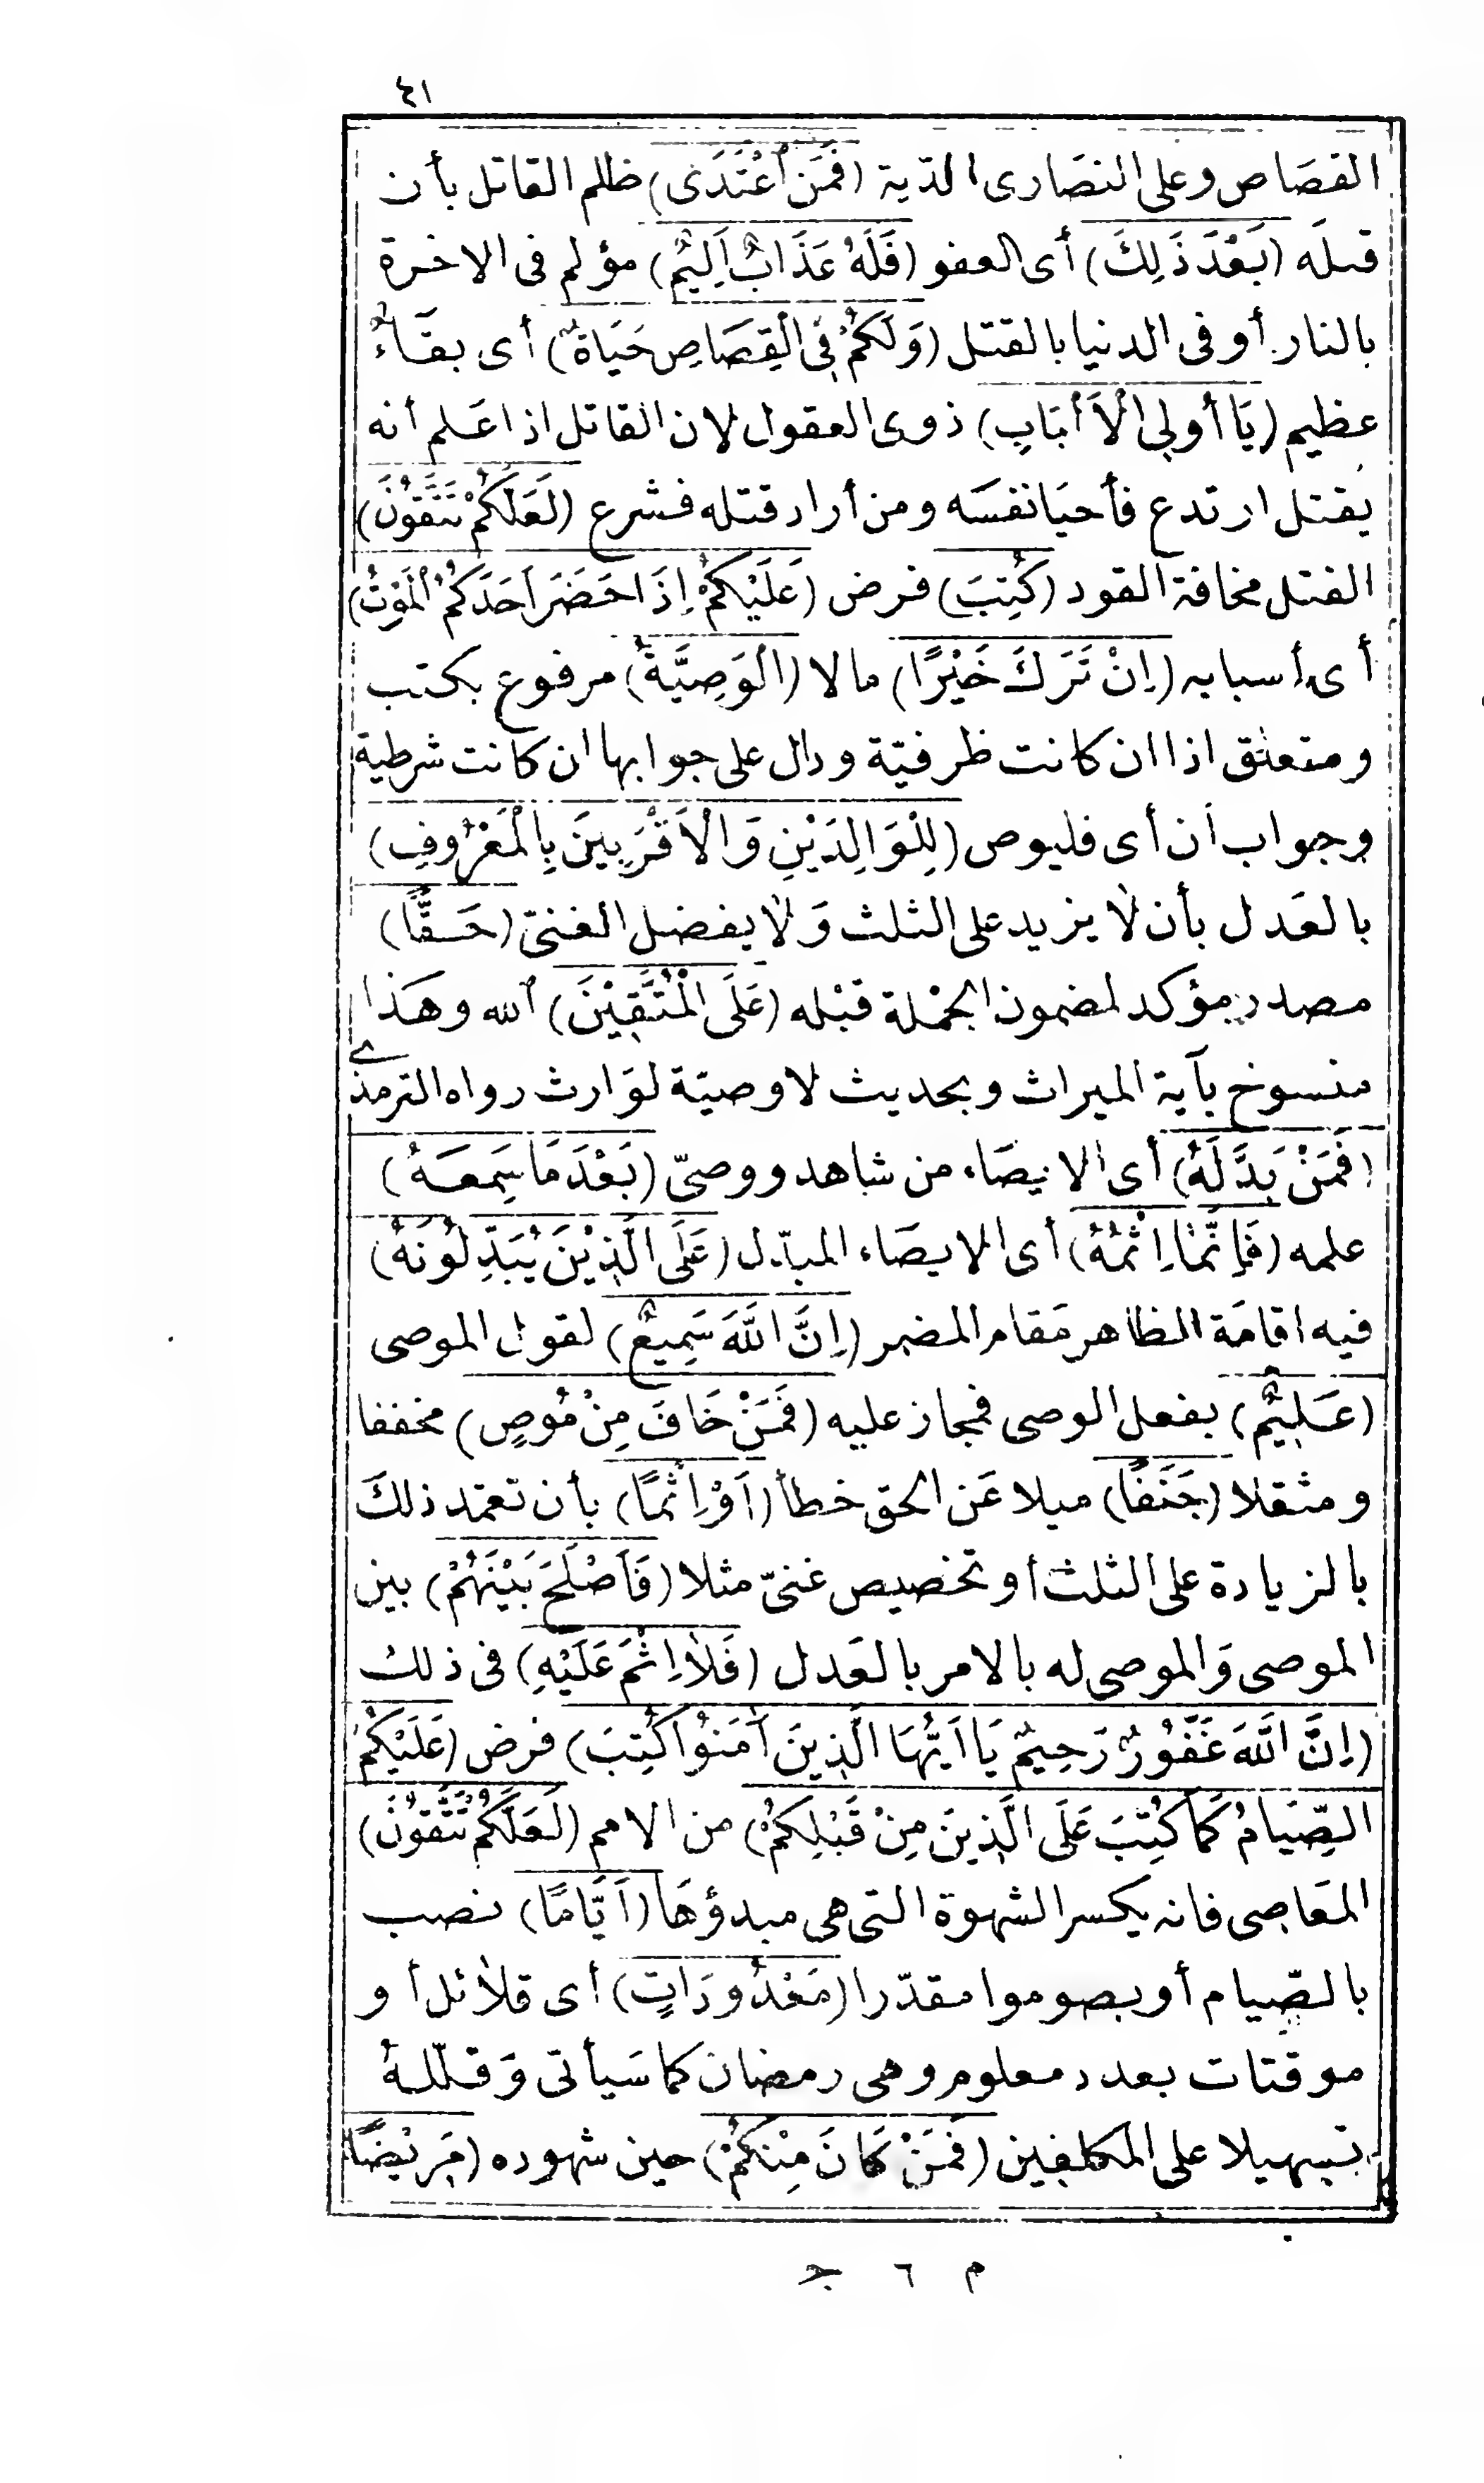 ٤١
القصَاص وعلى النصَارى الدّية (فَمَن اعْتَدَى) ظلم القاتل بأن
قتلَه (بَعْدَ ذَلِكَ) أى العفو (فَلَهُ عَذَابٌ اَلِيمٌ) مؤلم فى الاخرة
بالنار أو فى الدنيا بالقتل (وَلَكُمْ فِى الْقِصَاصِ حَيَاةٌ) أى بقَاءٌ
عظيم (يَا أُولِى الْاَلْبَابِ) ذوى العقول لان القاتل اذا عَلم أنه
يقتل ارتدع فأحيَا نفسَه ومن أراد قتله فشرع (لَعَلَّكُمْ تَتَّقُونَ)
القتل مخافة القود (كُتِبَ) فرض (عَلَيْكُمْ اِذَا حَضَرَ اَحَدَكُمُ الْمَوْتُ)
أى أسبابه (اِنْ تَرَكَ خَيْرًا) مالا (الْوَصِيَّةُ) مرفوع بكتب
ومتعلق اذا ان كانت ظرفيّة ودال على جوابها ان كانت شرطية
وجواب ان أى فليوص (لِلْوَالِدَيْنِ وَالْاَقْرَبِينَ بِالْمَعْرُوفِ)
بالعَدل بأن لا يزيد على الثلث وَلا يفضل الغنىّ (حَقًّا)
مصدر مؤكد لمضمون الجمْلة قبْله (عَلَى الْمُتَّقِيْنَ) الله وهَذا
منسوخ بآية الميراث وبحديث لا وصيّة لوَارث رواه الترمذى
(فَمَنْ بَدَّلَهُ) أى الايصَاء من شاهد ووصىّ (بَعْدَ مَا سَمِعَهُ)
علمه (فَاِنَّمَا اِثْمُهُ) أى الايصَاء المبدّل (عَلَى الَّذِيْنَ يُبَدِّلُونَهُ)
فيه اقامَة الظاهر مَقام المضمر (اِنَّ اللّهَ سَمِيعٌ) لقول الموصى
(عَلِيمٌ) بفعل الوصى فمجاز عليه (فَمَنْ خَافَ مِنْ مُوصٍ) مخففا
ومثقلا (جَنَفًا) ميلا عَن الحق خطأ (اَوْ اِثْمًا) بأن تعمّد ذلكَ
بالزيادة على الثلث أو تخصيص غنىّ مثلا (فَاَصْلَحَ بَيْنَهُمْ) بين
الموصى وَالموصى له بالامر بالعَدل (فَلَا اِثْمَ عَلَيْهِ) فى ذلك
(اِنَّ اللَّهَ غَفُورٌ رَحِيمٌ يَا اَيُّهَا الَّذِينَ اٰمَنُوا كُتِبَ) فرض (عَلَيْكُمُ
الصِّيَامُ كَمَا كُتِبَ عَلَى الَّذِينَ مِنْ قَبْلِكُمْ) من الامم (لَعَلَّكُمْ تَتَّقُونَ)
المَعَاصِى فانه يكسر الشهوة التى هى مبدؤهَا (اَيَّامًا) نصب
بالصّيام أو بصوموا مقدّرا (مَعْدُودَاتٍ) أى قلائل أو
موقتات بعدد معلوم وهى رمضان كما سَيأتى وَقلّلهُ
تسهيلا على المكلفين (فَمَنْ كَانَ مِنْكُمْ) حين شهوده (مَرِيْضًا
م ٦ ج